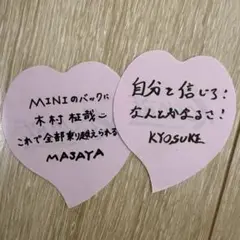 MINIのバックに
木村柾哉
これで全部乗り越えられる
MASAYA
自分を信じろ!
なんとかなるさ!
KYOSUKE